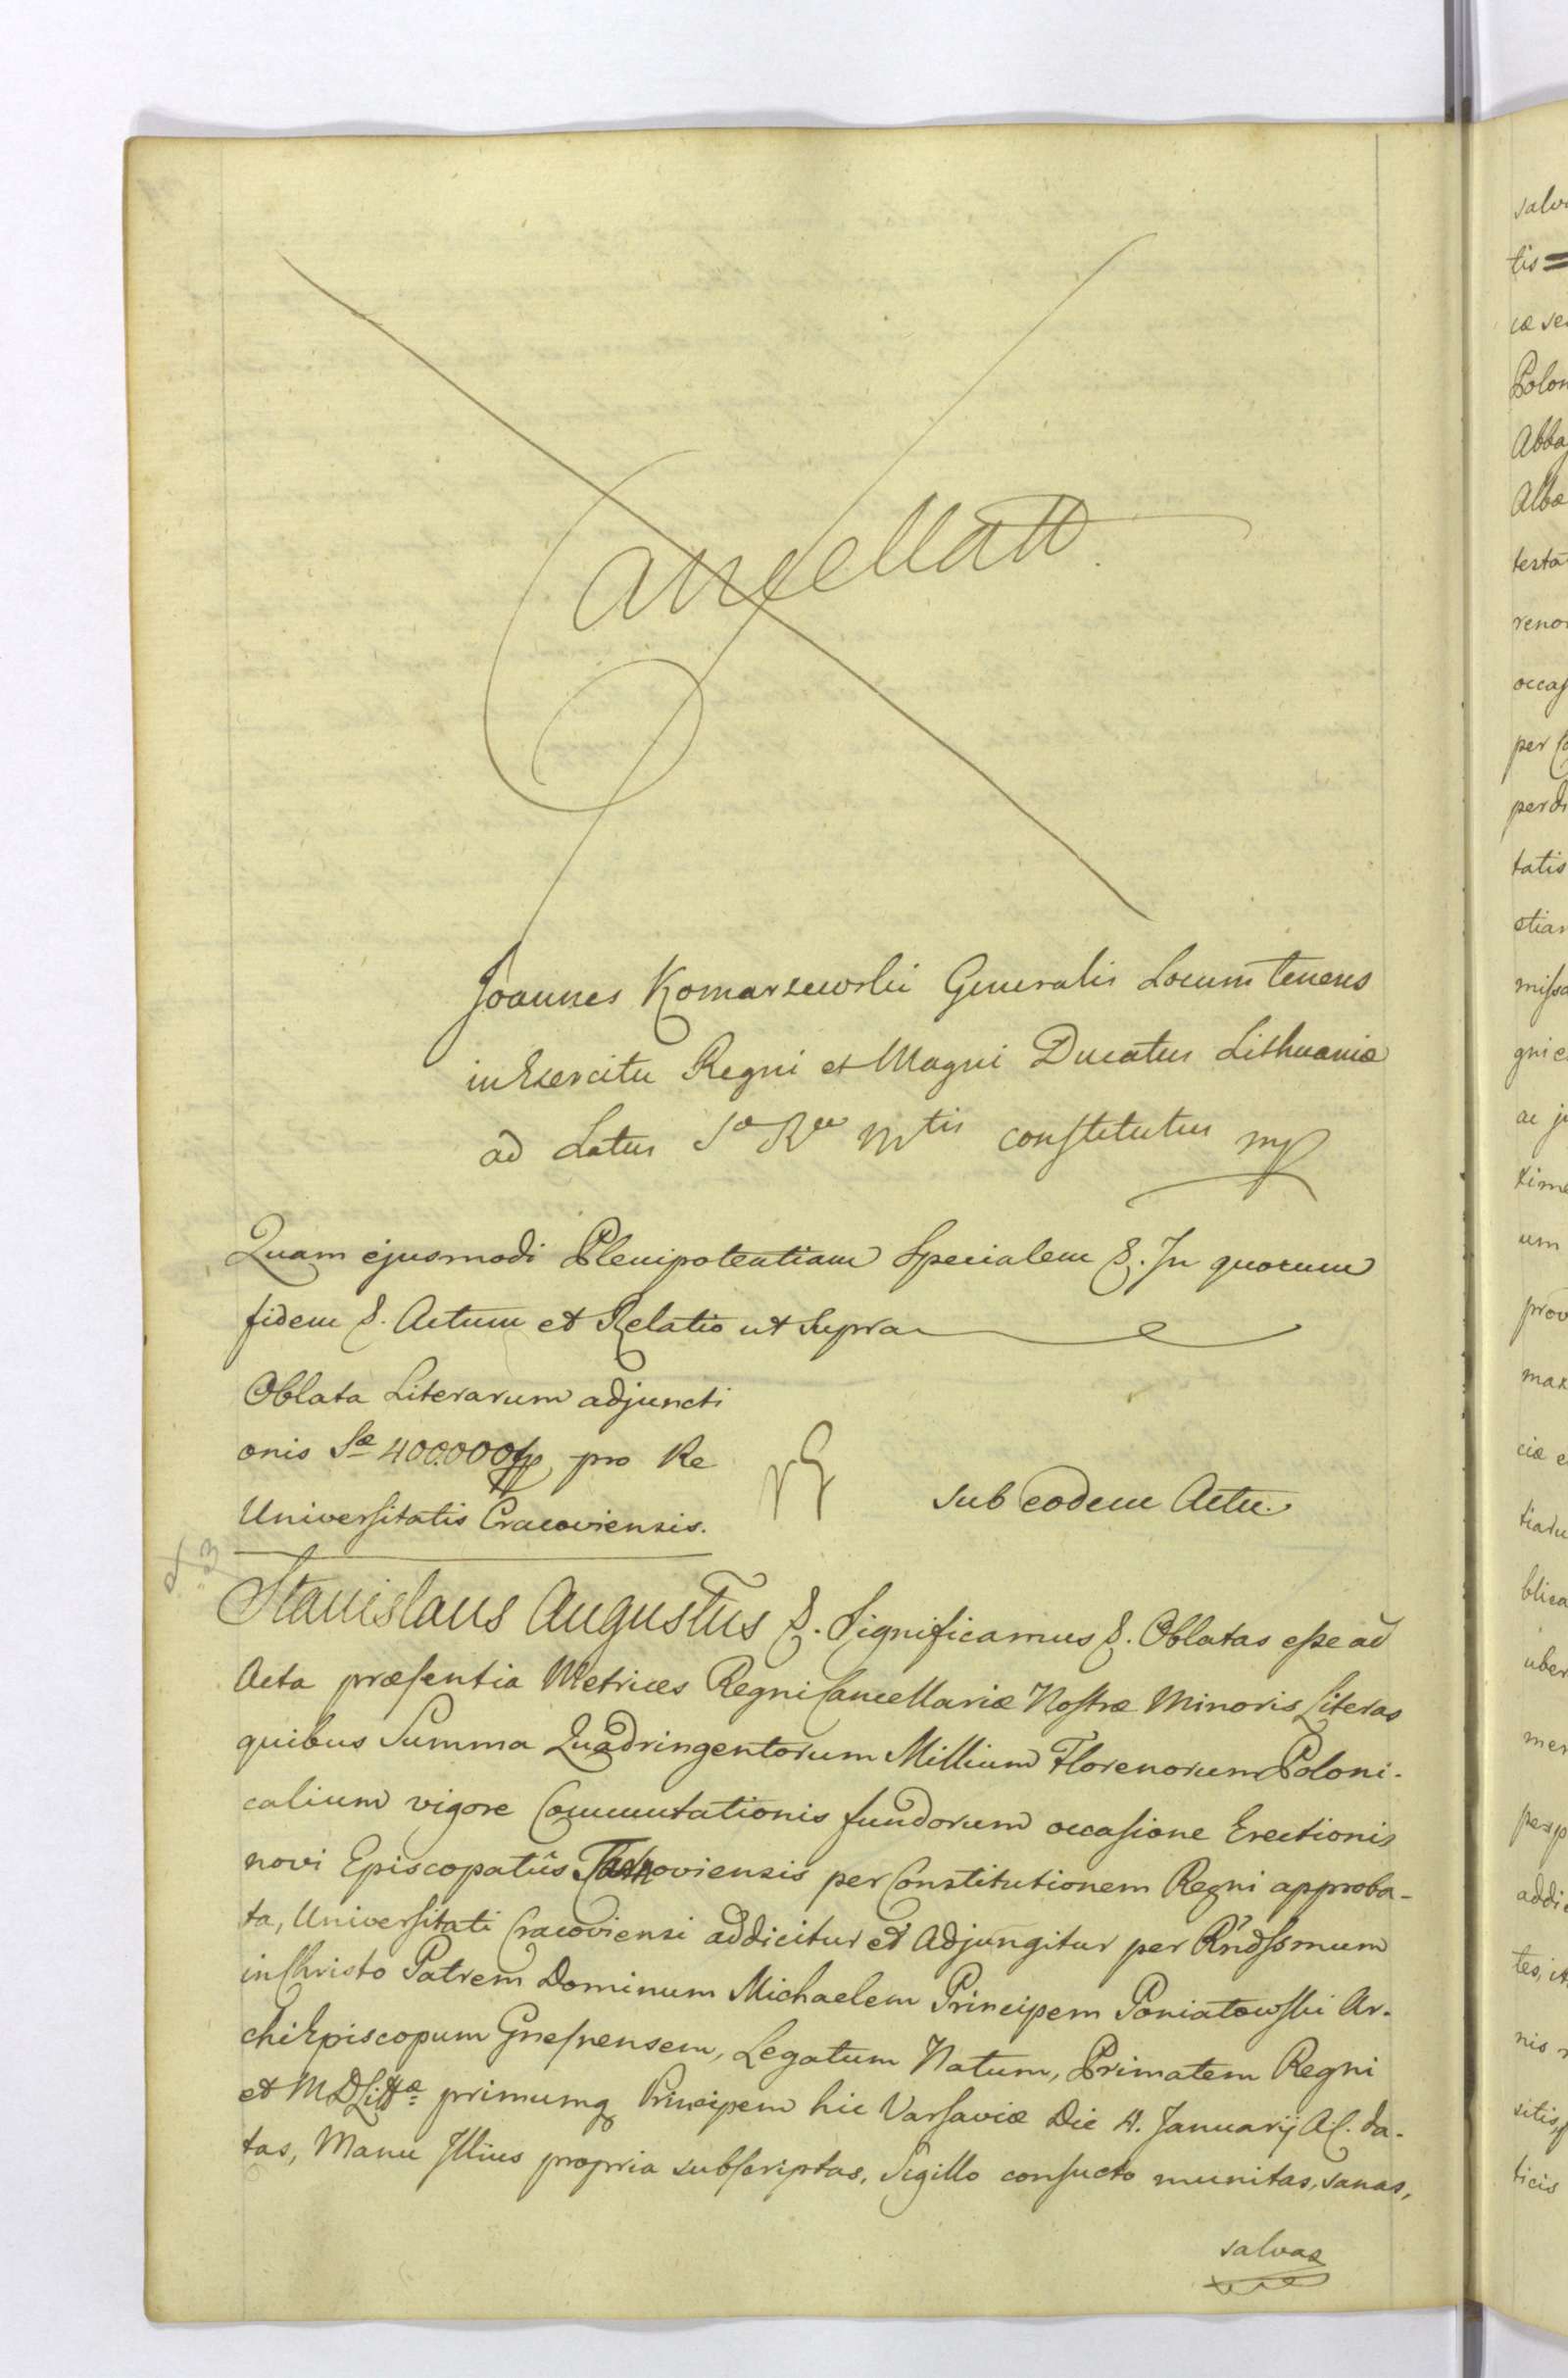 Cancellatt
Joannes Komarzewski Generalis Locum tenens
in Exercitu Regni et Magni Ducatus Lithuaniæ
ad Latus Sæ Ræ Mtis constitutus mp
Quam ejusmodi Plenipotentiam Specialem &. In quorum
fidem &. Actum et Relatio ut Supra
Oblata Literarum adjuncti
onis Sæ 400.000 fp pro Re
Universitatis Cracoviensis.
sub eodem Actu.
Stanislaus Augustus &. Significamus &. Oblatas esse ad
Acta præsentia Metrices Regni Cancellariæ Nostræ Minoris Literas
quibus Summa Quadringentorum Millium Florenorum Poloni-
calium vigore Commutationis fundorum occasione Erectionis
novi Episcopatûs per Constitutionem Regni approba-
ta, Universitati Cracoviensi addicitur et Adjungitur per Rndssmum
in Christo Patrem Dominum Michaelem Principem Poniatowski Ar-
chiEpiscopum Gnesnensem, Legatum Natum, Primatem Regni
et MDLittæ primumq Principem hic Varsaviæ Die 4. Januarij A.C. da-
tas, Manu Illius propria subscriptas, Sigillo consueto munitas, sanas,
salvas
salv
tis=
Polon
Abba
Albæ
testa
reno
occas
per
tatis
etiam
misso
um
prov
max
blica
uber
mer
addi
tes, it
nis
sitis,
ticis